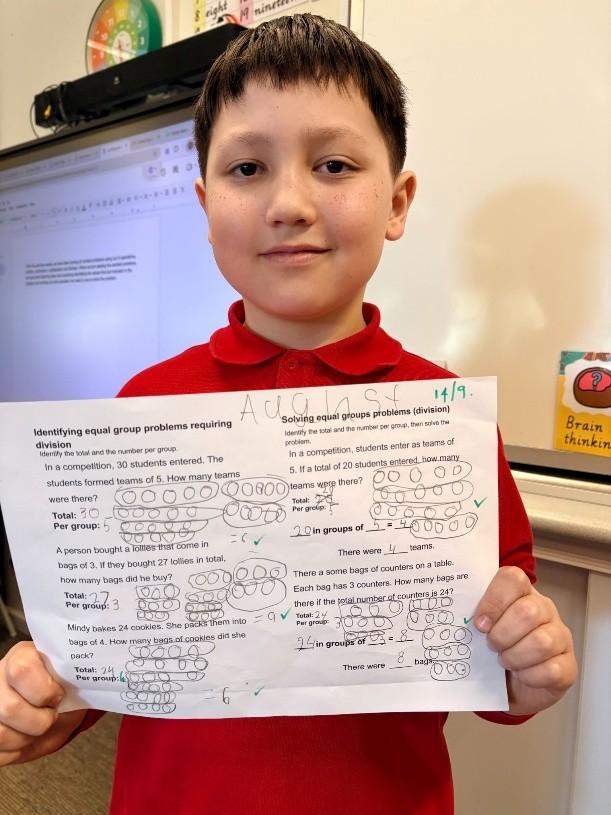 8 eight
19 nineteen
August
14/9.
Identifying equal group problems requiring
division
Identify the total and the number per group.
In a competition, 30 students entered. The
students formed teams of 5. How many teams
were there?
Total: 30
Per group: 5
= 6
A person bought a lollies that come in
bags of 3. If they bought 27 lollies in total,
how many bags did he buy?
Total: 27
Per group: 3
= 9
Mindy bakes 24 cookies. She packs them into
bags of 4. How many bags of cookies did she
pack?
Total: 24
Per group:
= 6
Solving equal groups problems (division)
Identify the total and the number per group, then solve the
problem.
In a competition, students enter as teams of
5. If a total of 20 students entered, how many
teams were there?
Total:
Per group:
20 in groups of 5 = 4
There were 4 teams.
There a some bags of counters on a table.
Each bag has 3 counters. How many bags are
there if the total number of counters is 24?
Total: 24
Per group: 3
24 in groups of 3 = 8
There were 8 bags
Brain
thinkin